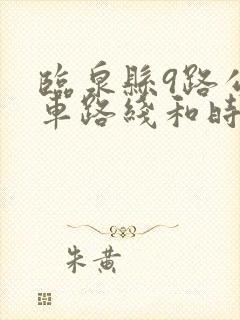 臨泉縣9路公
車路綫和時
朱黄